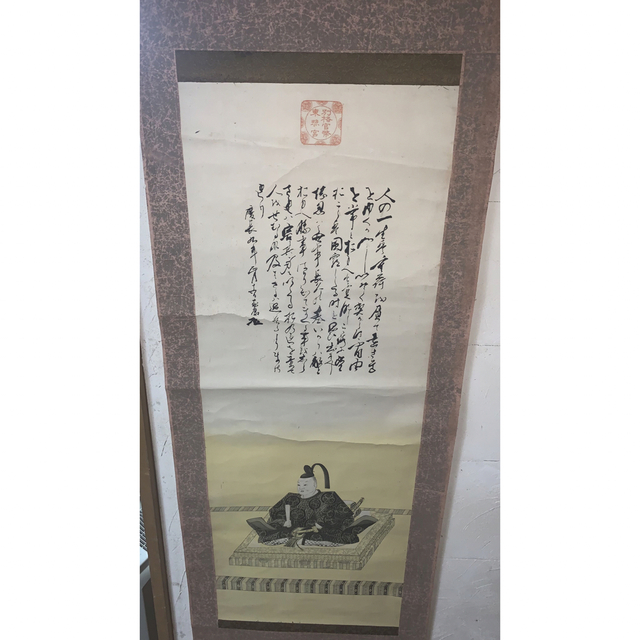 別格官幣
東照宮
人の一生は重荷を負て遠き道
をゆくかことしいそくへからす不自由
を常とおもへは不足なしこゝろに望
おこらは困窮したる時を思ひ出すへし
堪忍は無事長久の基いかりは敵と
おもへ勝事はかり知てまくる事をしら
されは害其身にいたるおのれを責て
人をせむるな及はさるは過たるより
まされり
慶長九年